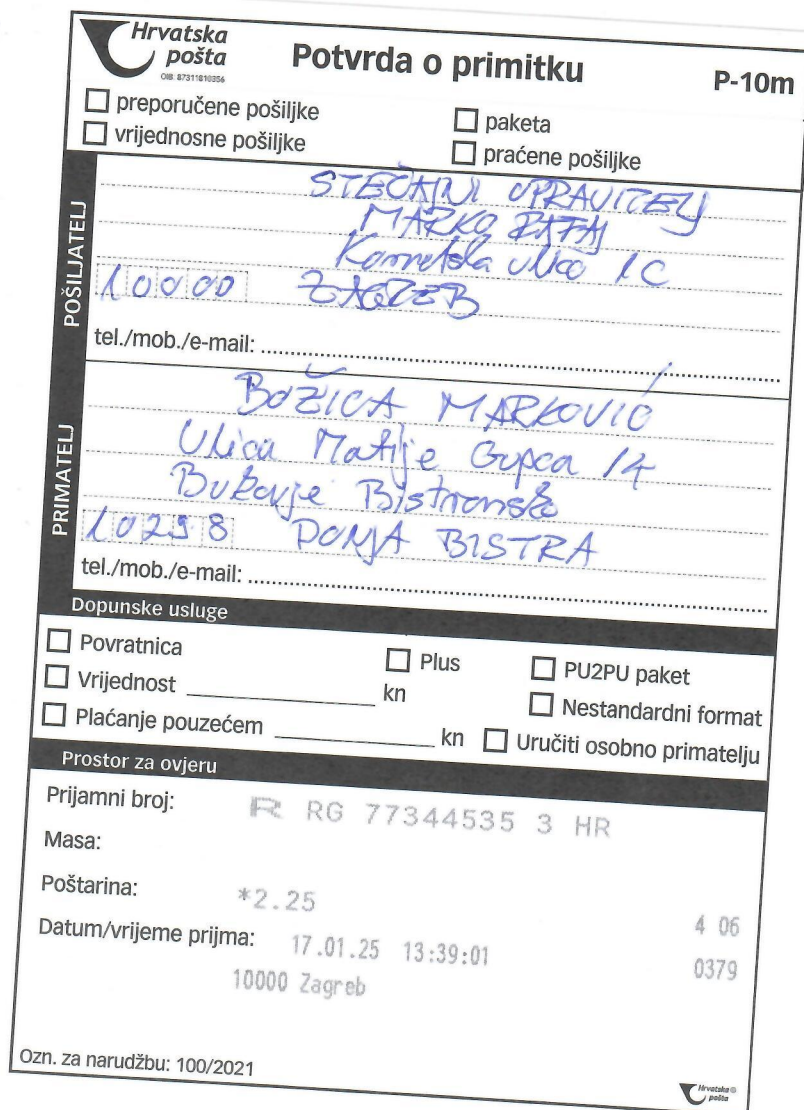 Hrvatska
pošta
OIB: 87311810356
Potvrda o primitku
P-10m
preporučene pošiljke
paketa
vrijednosne pošiljke
praćene pošiljke
POŠILJATELJ
STEČAJNI UPRAVITELJ
MARKO
ulica 1C
10000 ZAGREB
tel./mob./e-mail:
PRIMATELJ
BOŽICA MARKOVIĆ
Ulica Matije Gupca 14
Bukovje Bistransko
10298 DONJA BISTRA
tel./mob./e-mail:
Dopunske usluge
Povratnica
Plus
PU2PU paket
Vrijednost kn
Nestandardni format
Plaćanje pouzećem kn
Uručiti osobno primatelju
Prostor za ovjeru
Prijamni broj: R RG 77344535 3 HR
Masa:
Poštarina: *2.25
4 06
Datum/vrijeme prijma: 17.01.25 13:39:01
0379
10000 Zagreb
Ozn. za narudžbu: 100/2021
Hrvatska
pošta